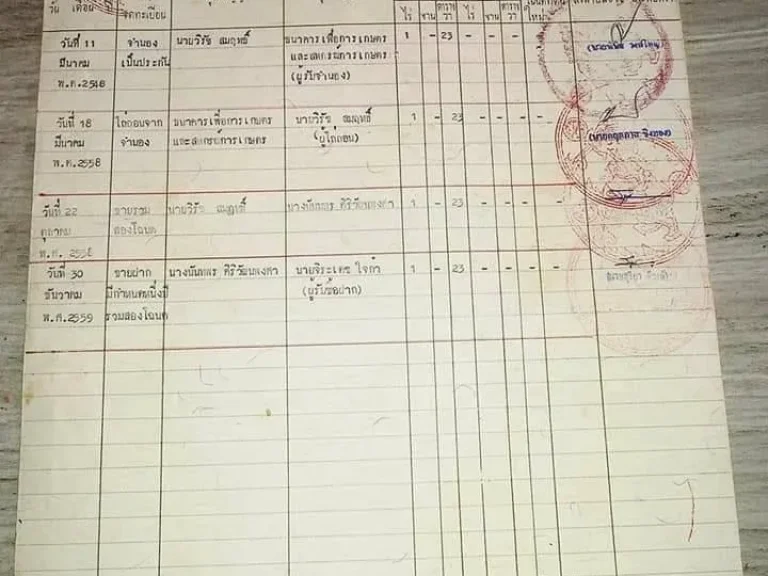 วัน เดือน
จดทะเบียน
ไร่ งาน ตาราง วา ไร่ งาน ตาราง วา
ใหม่
วันที่ 11 จำนอง นายวิรัช สมฤทธิ์ ธนาคารเพื่อการเกษตร 1 - 23 - - - -
มีนาคม เป็นประกัน และสหกรณ์การเกษตร
พ.ศ.2548 (ผู้รับจำนอง)
วันที่ 18 ไถ่ถอนจาก ธนาคารเพื่อการเกษตร นายวิรัช สมฤทธิ์ 1 - 23 - - - -
มีนาคม จำนอง และสหกรณ์การเกษตร (ผู้ไถ่ถอน)
พ.ศ.2558
วันที่ 22 ขายรวม นายวิรัช สมฤทธิ์ 1 - 23 - - - -
ตุลาคม สองโฉนด
พ.ศ. 2558
วันที่ 30 ขายฝาก นายจิระเดช ใจกำ 1 - 23 - - - -
ธันวาคม มีกำหนดหนึ่งปี (ผู้รับซื้อฝาก)
พ.ศ.2559 รวมสองโฉนด